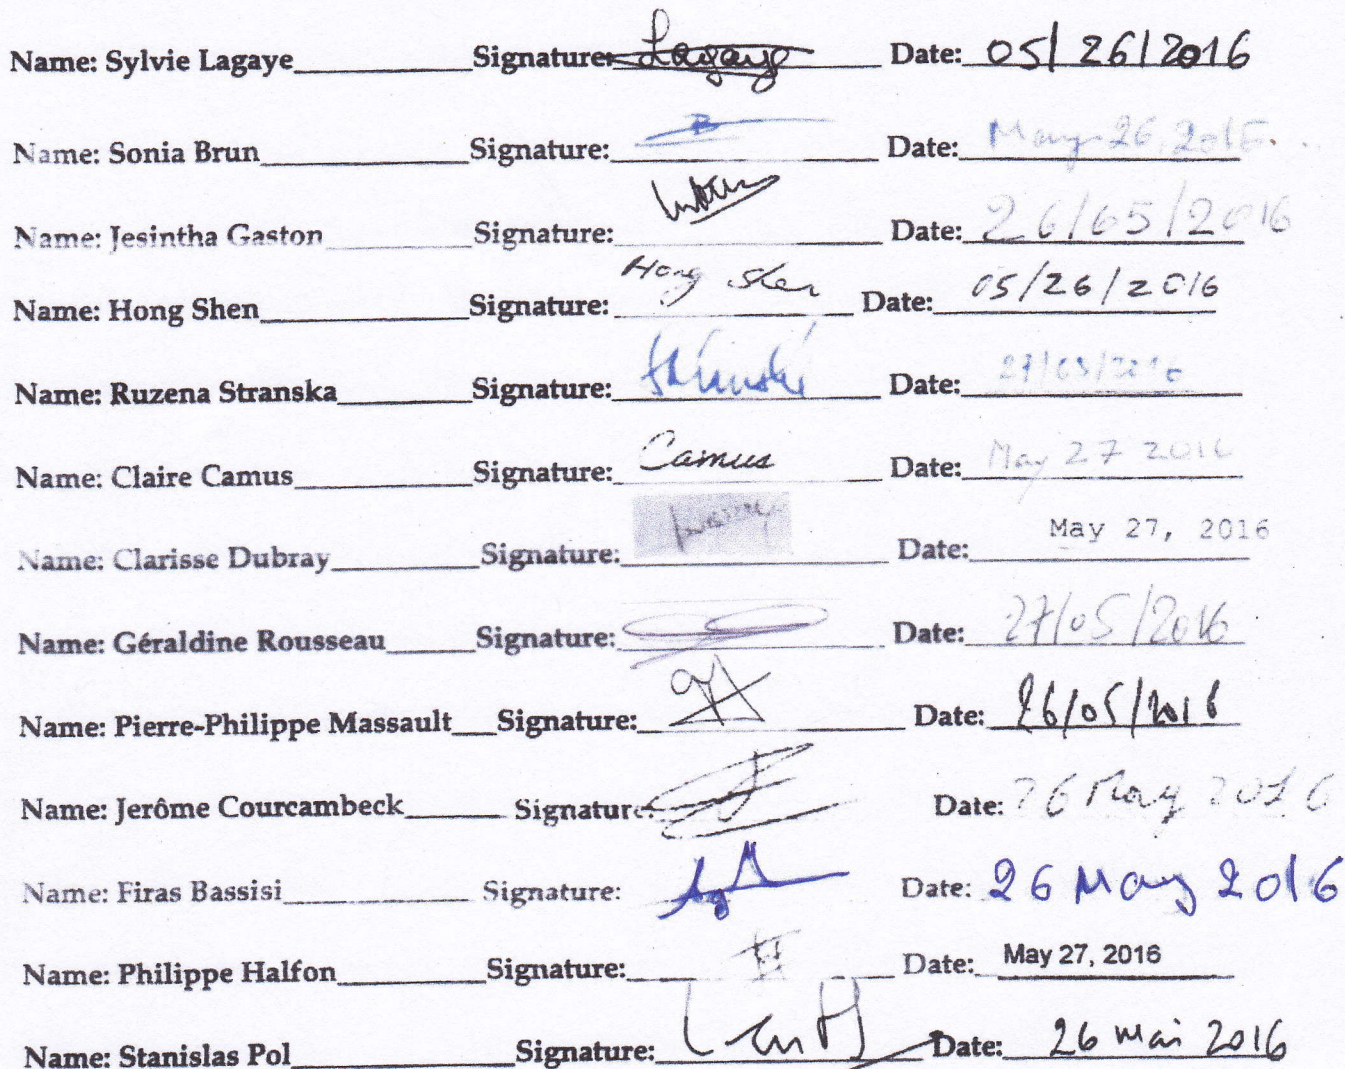 Name: Sylvie Lagaye Signature: Lagaye Date: 05/26/2016
Name: Sonia Brun Signature: B Date: May 26, 2016
Name: Jesintha Gaston Signature: Date: 26/05/2016
Name: Hong Shen Signature: Hong Shen Date: 05/26/2016
Name: Ruzena Stranska Signature: Date: 27/05/2016
Name: Claire Camus Signature: Camus Date: May 27 2016
Name: Clarisse Dubray Signature: Date: May 27, 2016
Name: Géraldine Rousseau Signature: Date: 27/05/2016
Name: Pierre-Philippe Massault Signature: Date: 26/05/2016
Name: Jerôme Courcambeck Signature: Date: 26 May 2016
Name: Firas Bassisi Signature: Date: 26 May 2016
Name: Philippe Halfon Signature: Date: May 27, 2016
Name: Stanislas Pol Signature: Date: 26 mai 2016